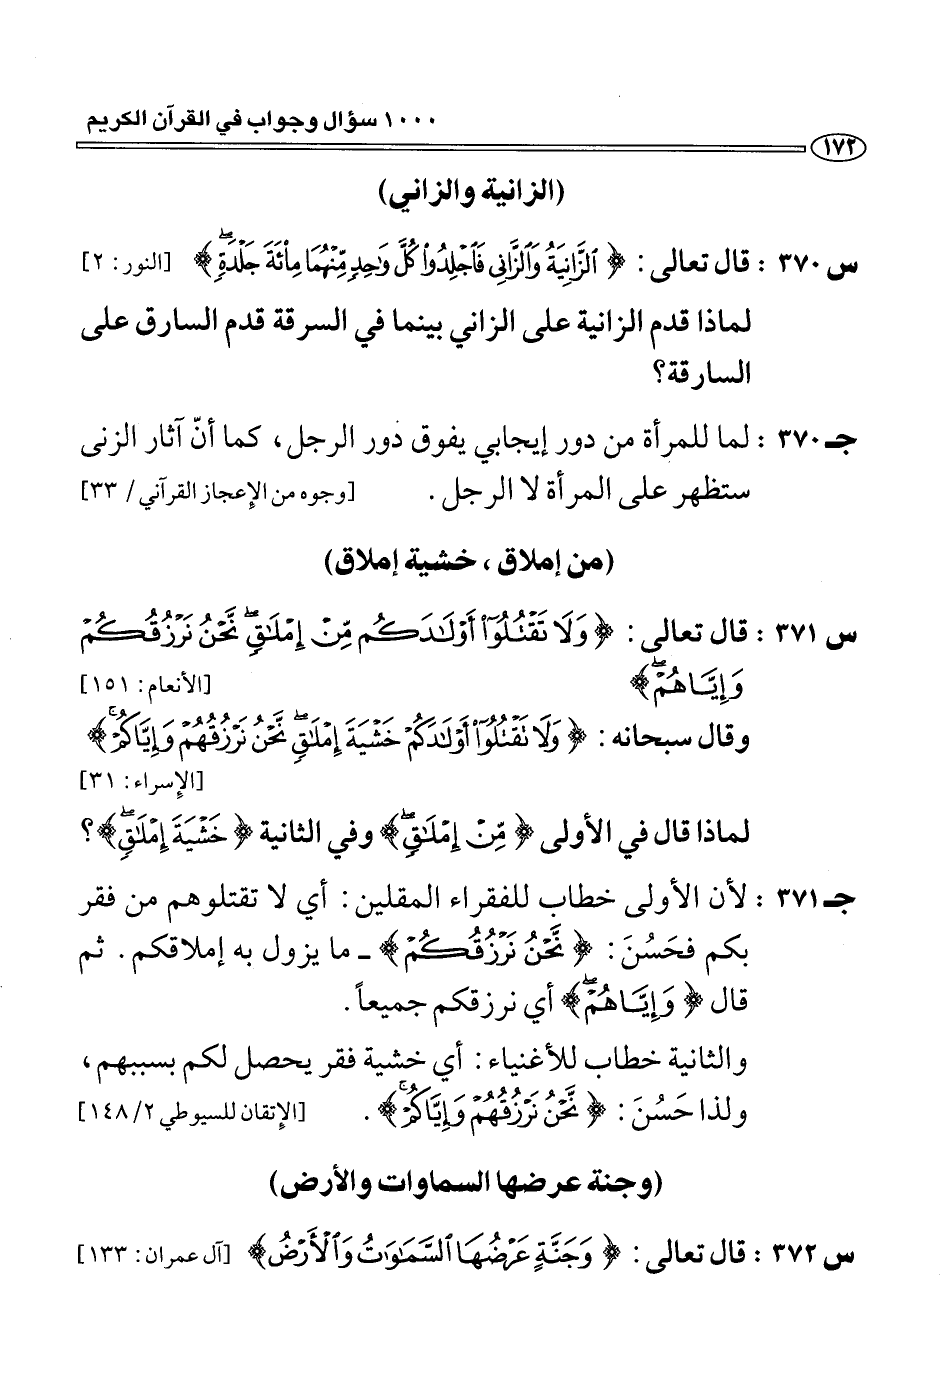 ١٠٠٠ سؤال وجواب في القرآن الكريم
١٧٢
(الزانية والزاني)
س ٣٧٠ : قال تعالى : ﴿ ٱلزَّانِيَةُ وَٱلزَّانِي فَٱجْلِدُوا۟ كُلَّ وَٰحِدٍ مِّنْهُمَا مِا۟ئَةَ جَلْدَةٍۖ ﴾ [النور: ٢]
لماذا قدم الزانية على الزاني بينما في السرقة قدم السارق على
السارقة؟
جـ ٣٧٠ : لما للمرأة من دور إيجابي يفوق دور الرجل، كما أنّ آثار الزنى
ستظهر على المرأة لا الرجل . [وجوه من الإعجاز القرآني/ ٣٣]
(من إملاق ، خشية إملاق)
س ٣٧١ : قال تعالى : ﴿ وَلَا تَقْتُلُوٓا۟ أَوْلَـٰدَكُم مِّنْ إِمْلَـٰقٍۖ نَّحْنُ نَرْزُقُكُمْ
وَإِيَّاهُمْۖ ﴾ [الأنعام: ١٥١]
وقال سبحانه : ﴿ وَلَا تَقْتُلُوٓا۟ أَوْلَـٰدَكُمْ خَشْيَةَ إِمْلَـٰقٍۖ نَّحْنُ نَرْزُقُهُمْ وَإِيَّاكُمْۚ ﴾
[الإسراء: ٣١]
لماذا قال في الأولى ﴿ مِّنْ إِمْلَـٰقٍۖ ﴾ وفي الثانية ﴿ خَشْيَةَ إِمْلَـٰقٍۖ ﴾؟
جـ ٣٧١ : لأن الأولى خطاب للفقراء المقلين : أي لا تقتلوهم من فقر
بكم فحَسُنَ : ﴿ نَّحْنُ نَرْزُقُكُمْ ﴾ ـ ما يزول به إملاقكم . ثم
قال ﴿ وَإِيَّاهُمْۖ ﴾ أي نرزقكم جميعاً .
والثانية خطاب للأغنياء : أي خشية فقر يحصل لكم بسببهم ،
ولذا حَسُنَ : ﴿ نَّحْنُ نَرْزُقُهُمْ وَإِيَّاكُمْۚ ﴾ . [الإتقان للسيوطي ٢/ ١٤٨]
(وجنة عرضها السماوات والأرض)
س ٣٧٢ : قال تعالى : ﴿ وَجَنَّةٍ عَرْضُهَا ٱلسَّمَـٰوَٰتُ وَٱلْأَرْضُ ﴾ [آل عمران: ١٣٣]